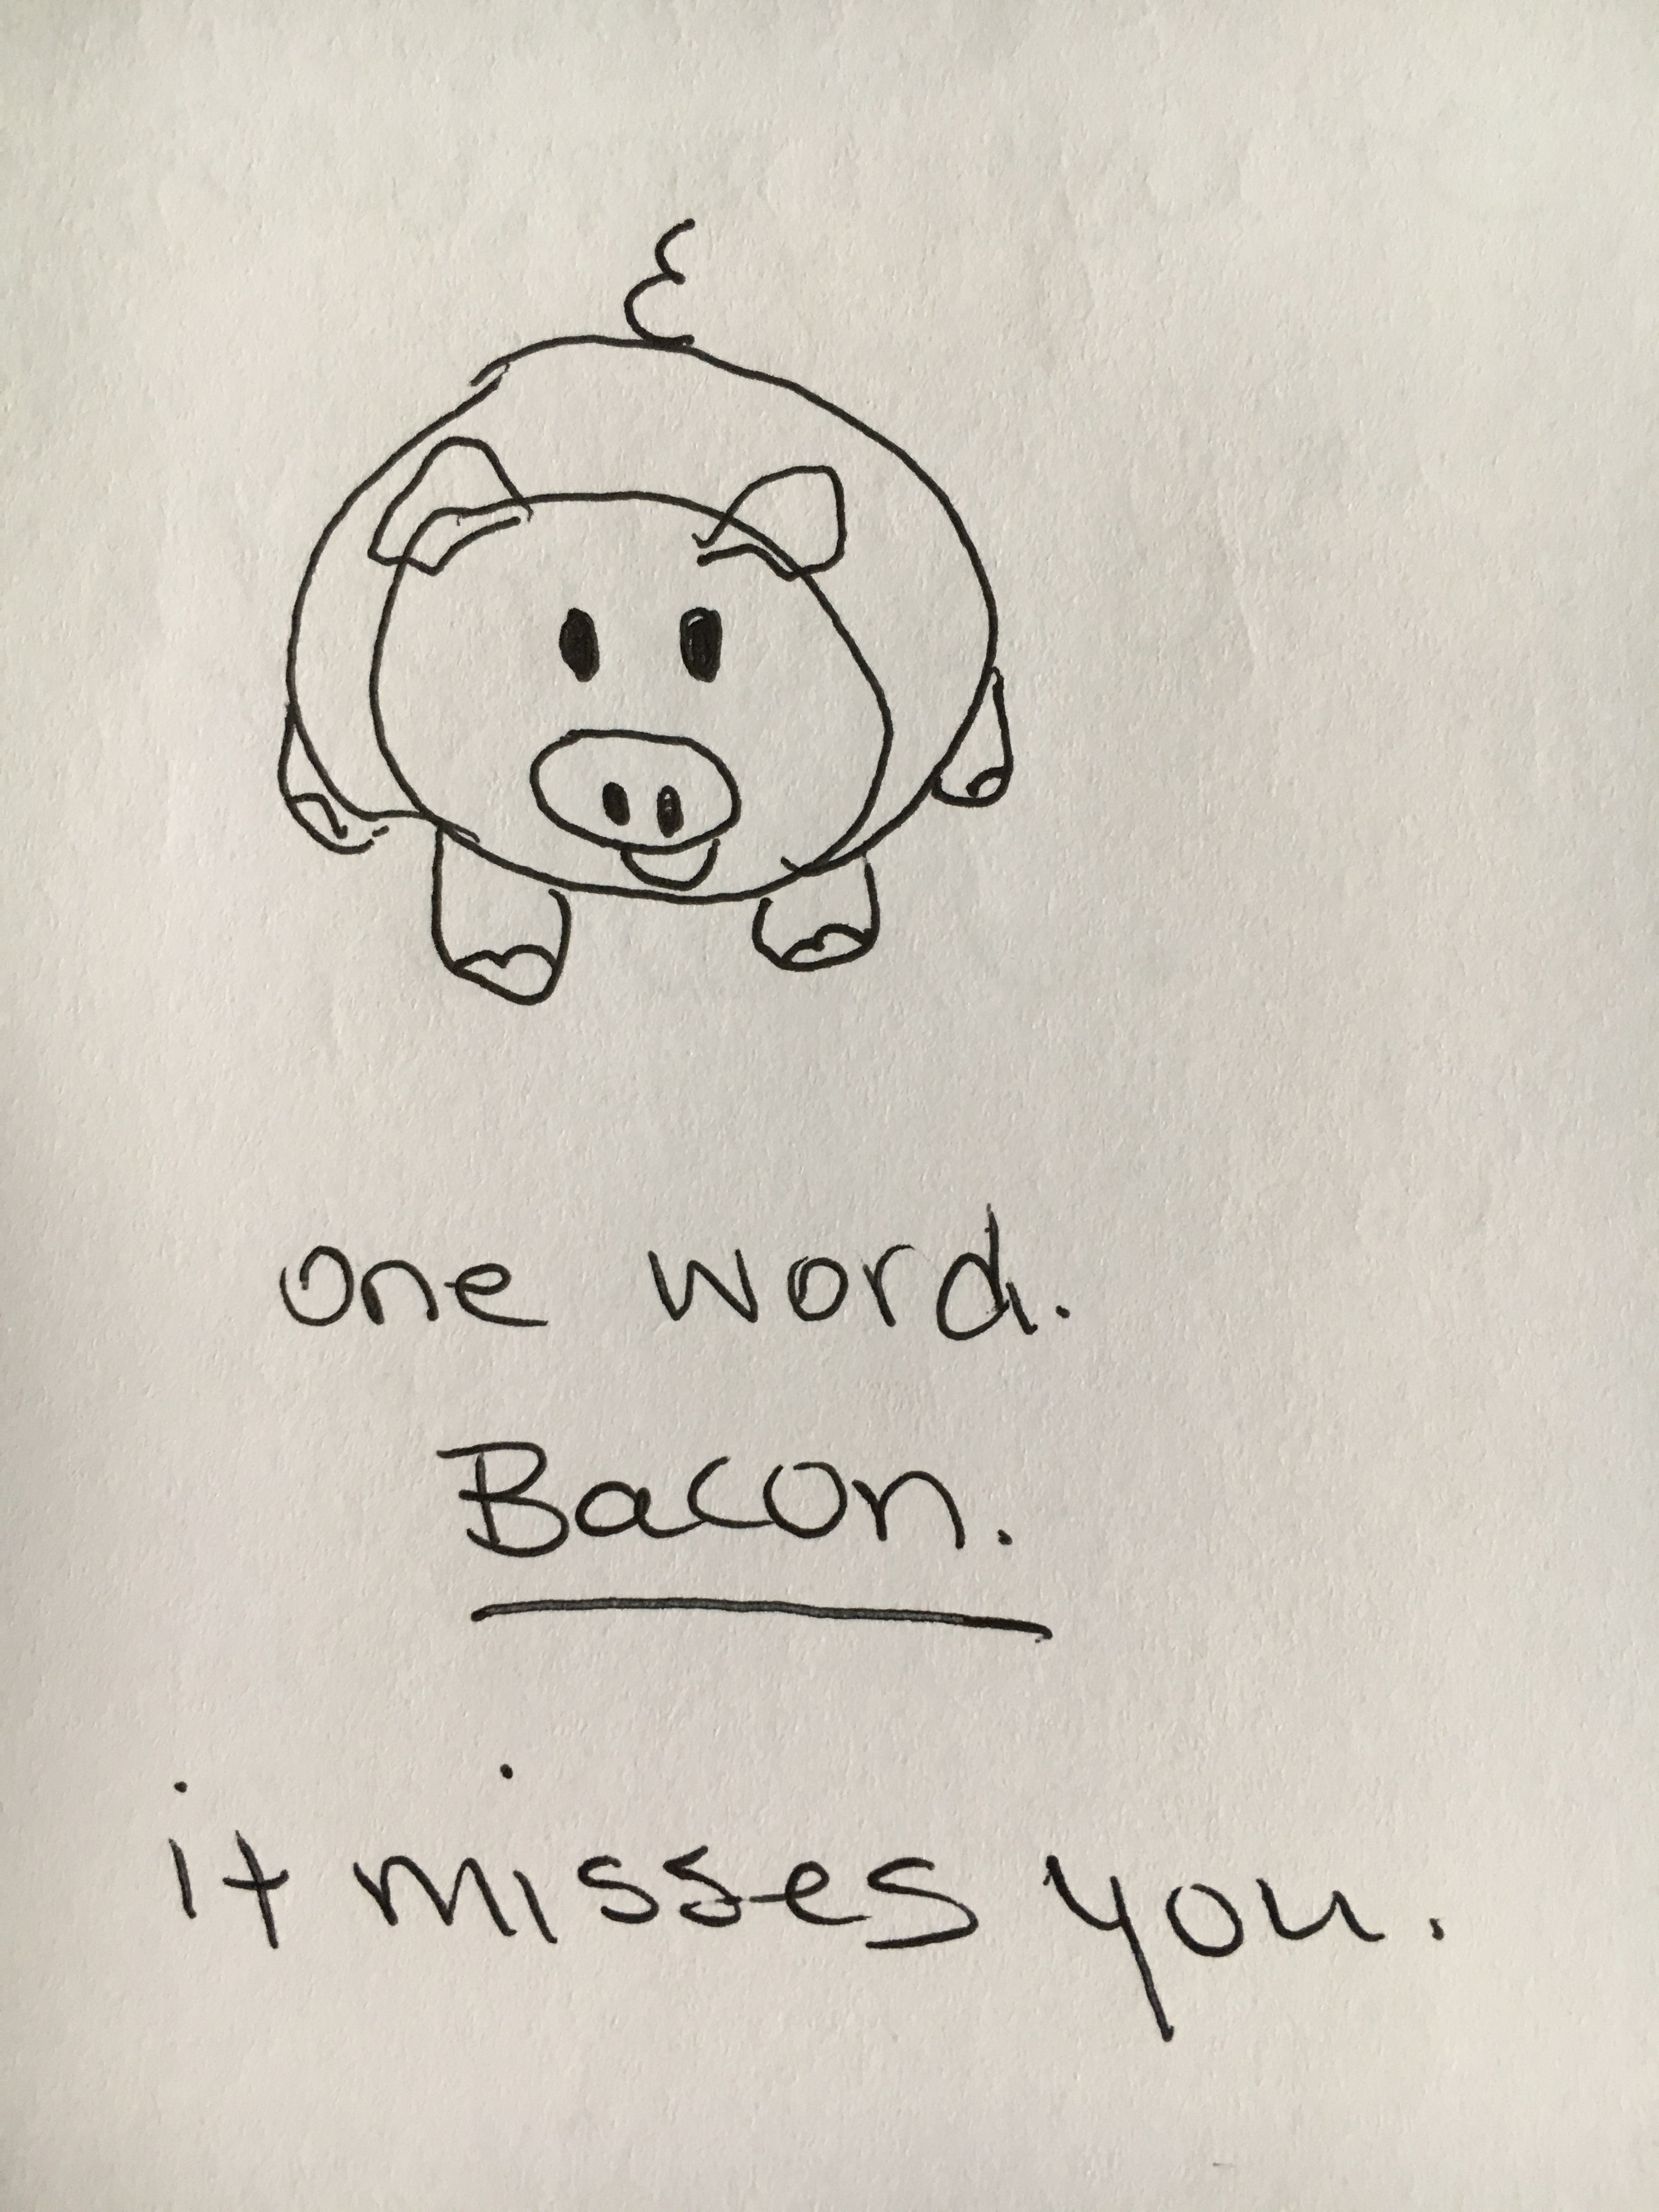 one word.
Bacon.
it misses you.